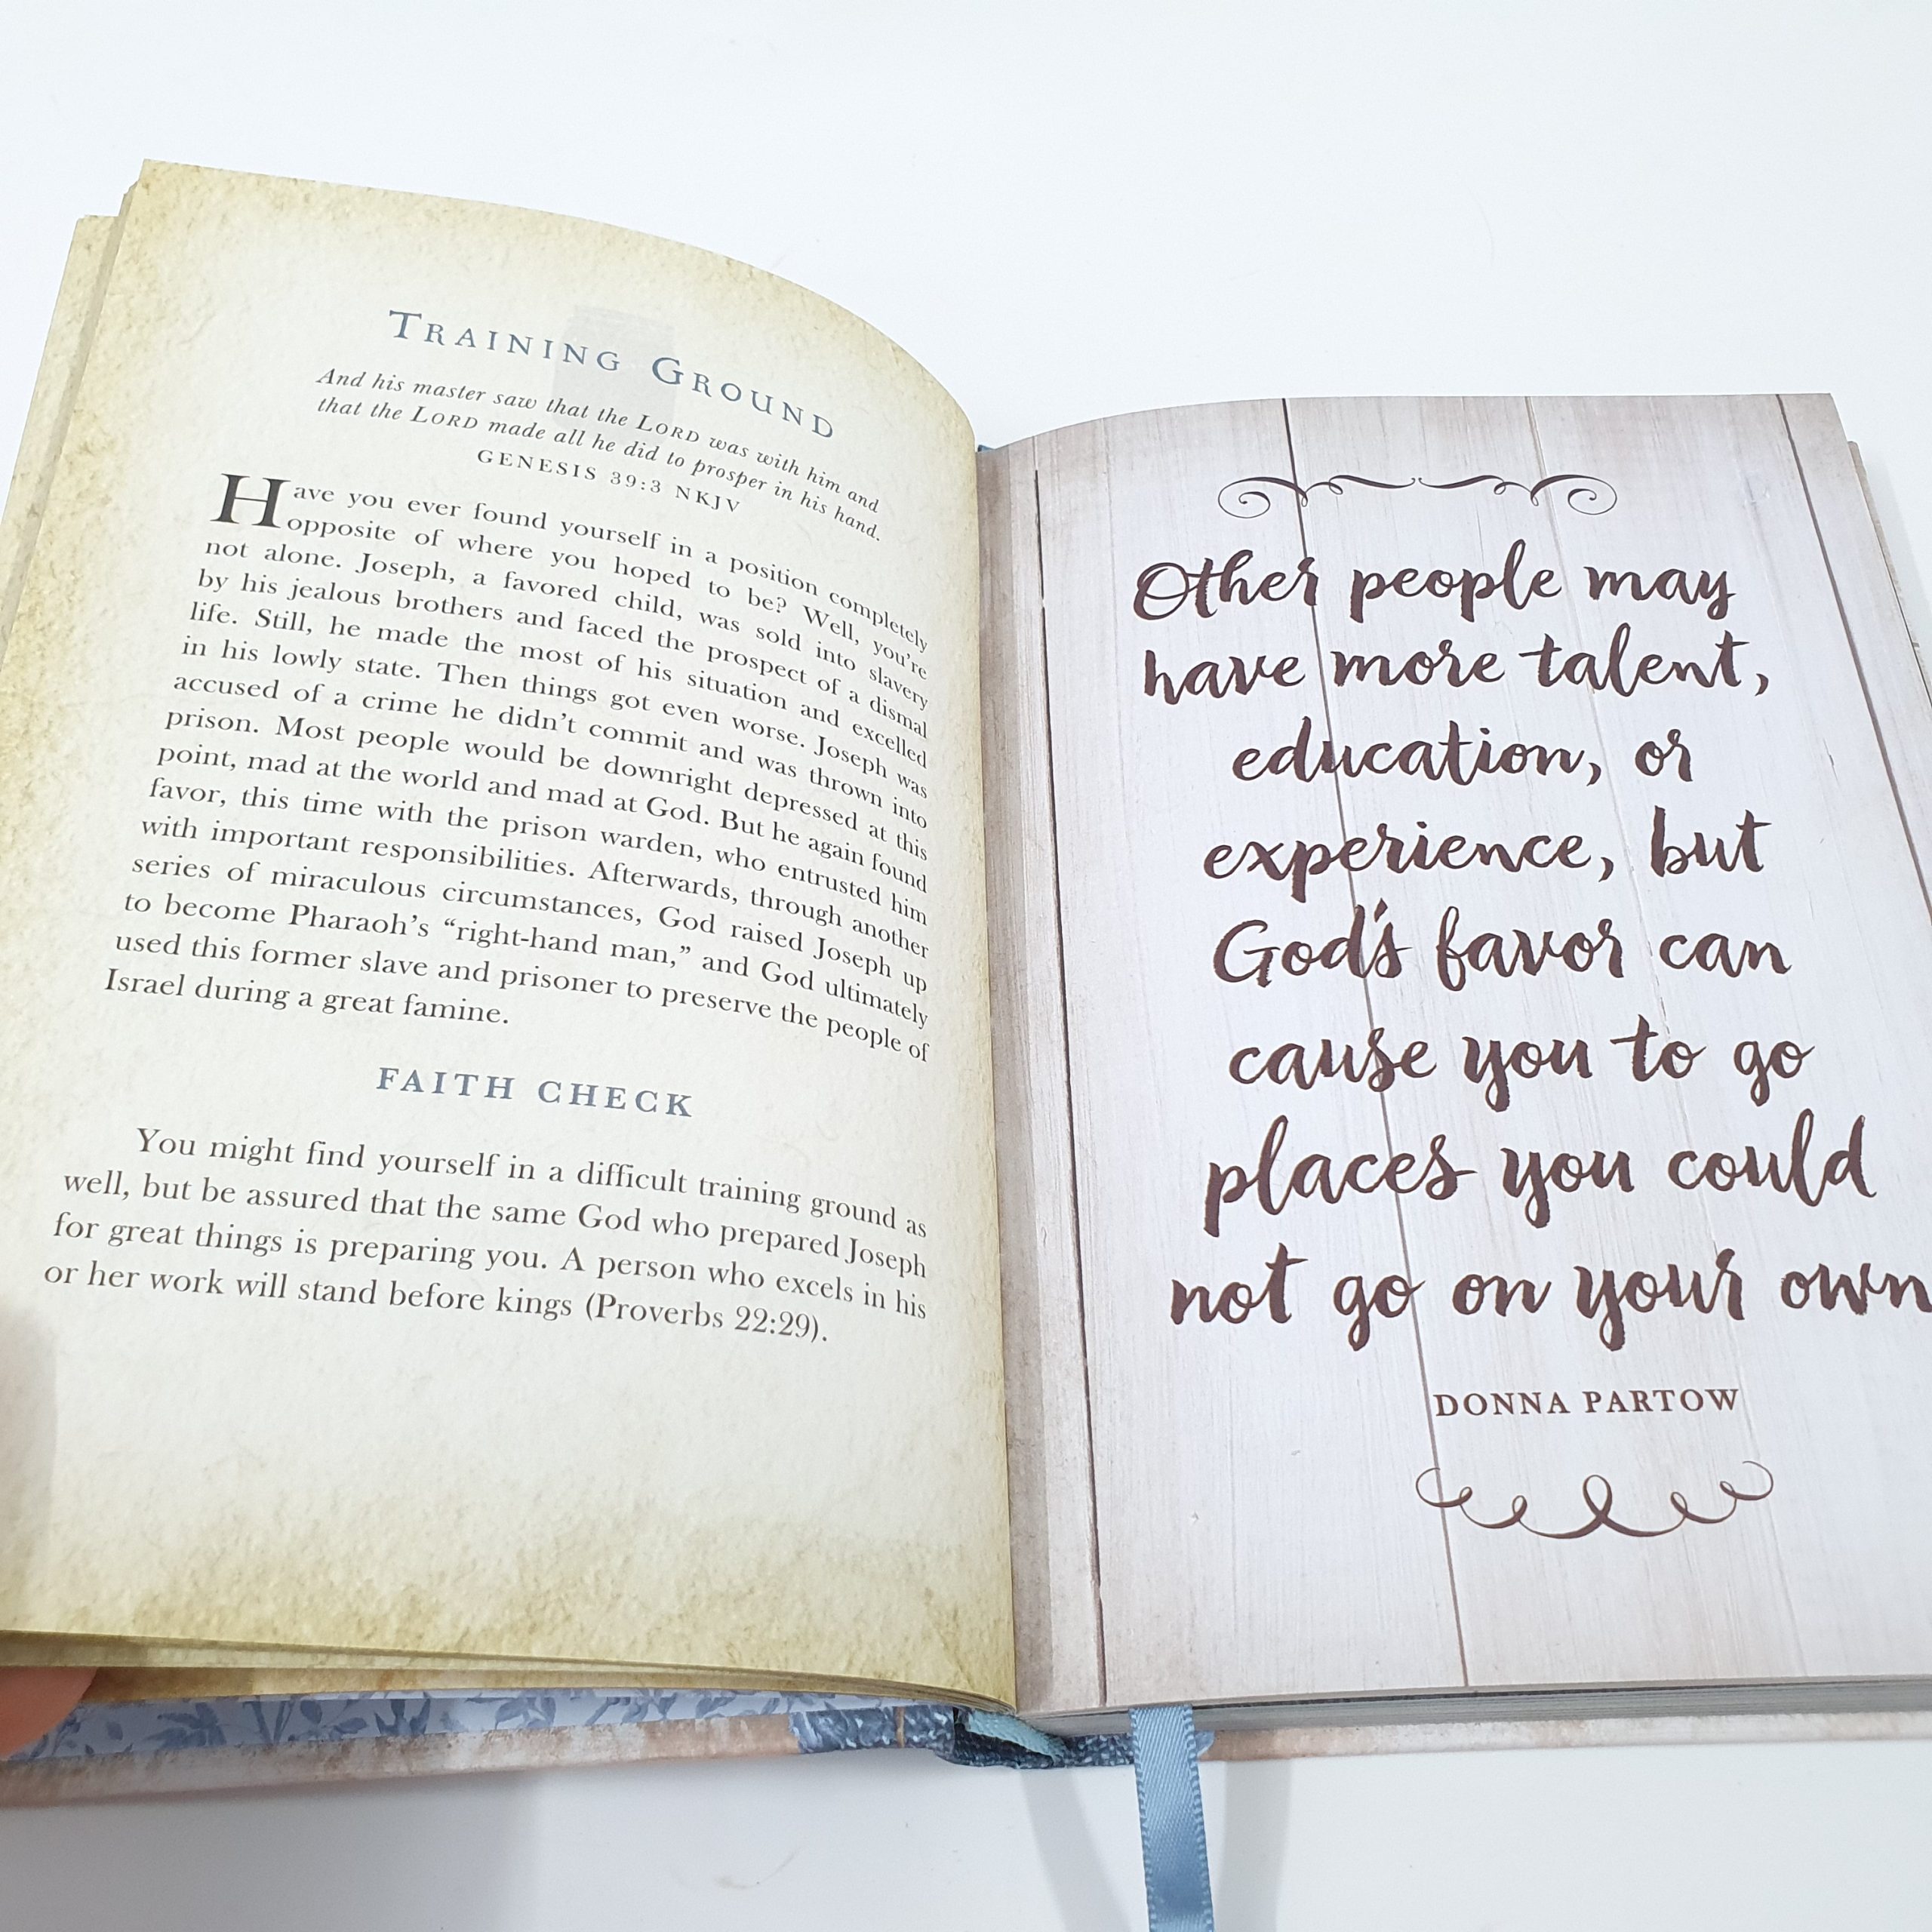 TRAINING GROUND
And his master saw that the LORD was with him and
that the LORD made all he did to prosper in his hand.
GENESIS 39:3 NKJV
Have you ever found yourself in a position completely
opposite of where you hoped to be? Well, you're
not alone. Joseph, a favored child, was sold into slavery
by his jealous brothers and faced the prospect of a dismal
life. Still, he made the most of his situation and excelled
in his lowly state. Then things got even worse. Joseph was
accused of a crime he didn't commit and was thrown into
prison. Most people would be downright depressed at this
point, mad at the world and mad at God. But he again found
favor, this time with the prison warden, who entrusted him
with important responsibilities. Afterwards, through another
series of miraculous circumstances, God raised Joseph up
to become Pharaoh's “right-hand man,” and God ultimately
used this former slave and prisoner to preserve the people of
Israel during a great famine.
FAITH CHECK
You might find yourself in a difficult training ground as
well, but be assured that the same God who prepared Joseph
for great things is preparing you. A person who excels in his
or her work will stand before kings (Proverbs 22:29).
Other people may
have more talent,
education, or
experience, but
God's favor can
cause you to go
places you could
not go on your own
DONNA PARTOW